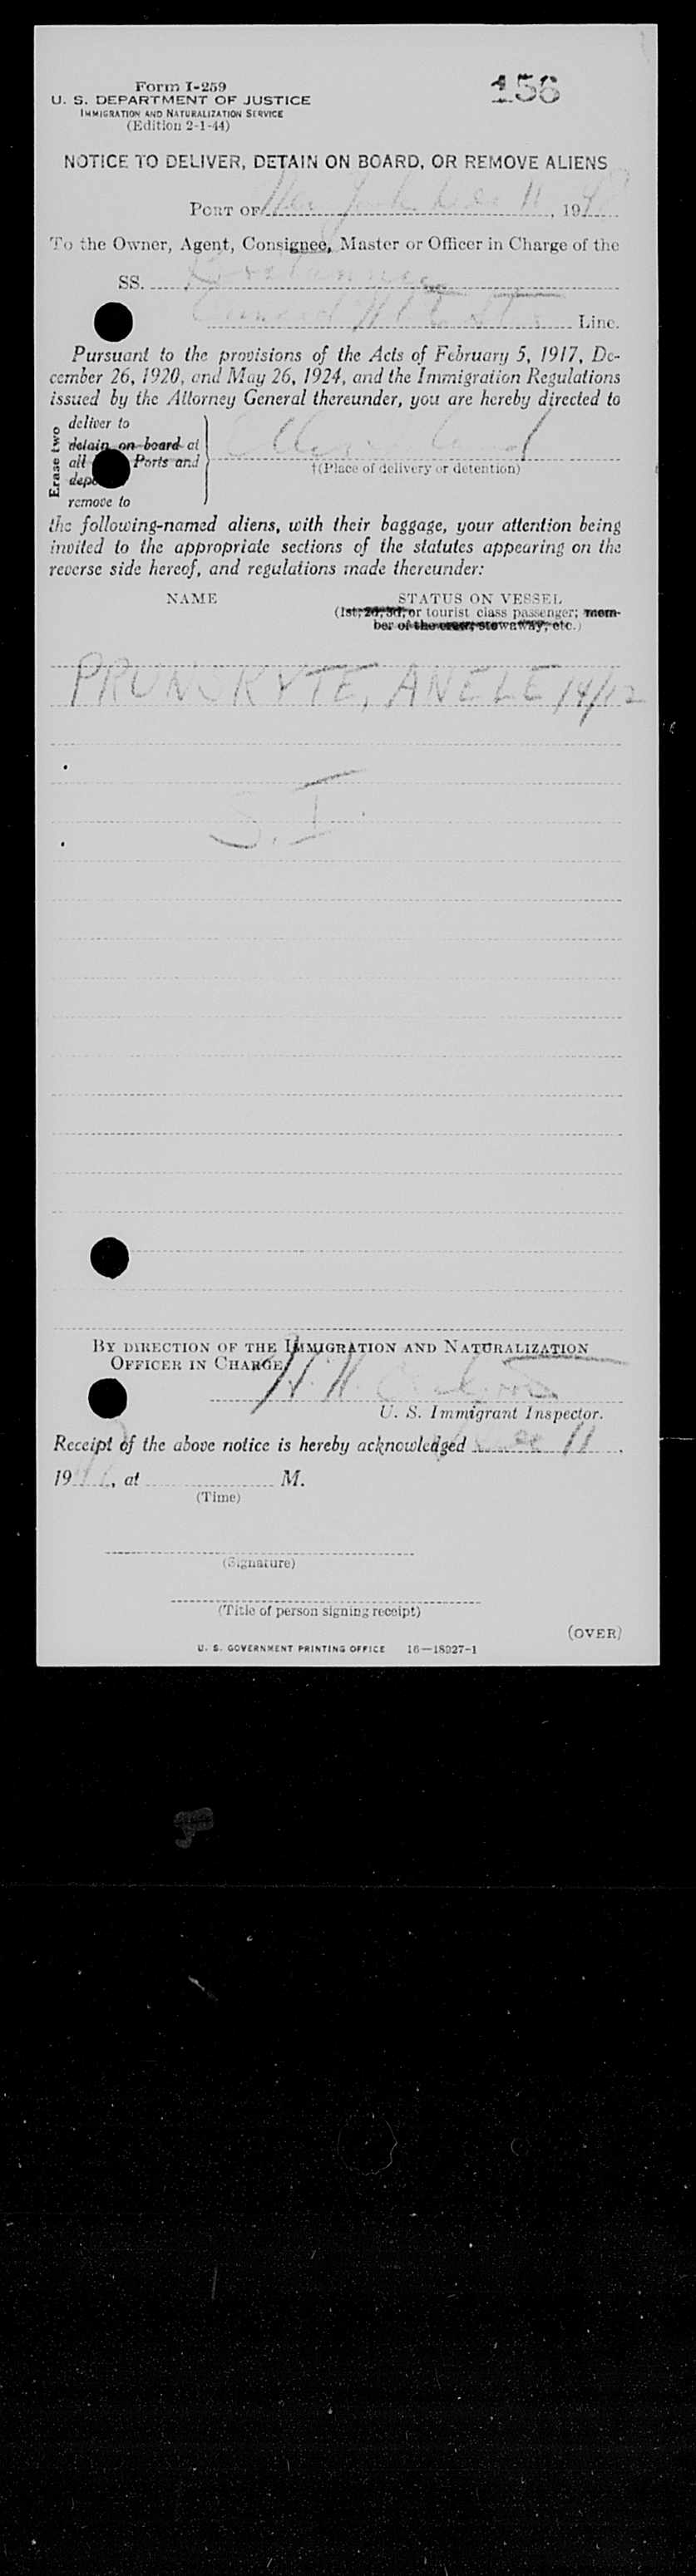 156
Form I-259
U. S. DEPARTMENT OF JUSTICE
IMMIGRATION AND NATURALIZATION SERVICE
(Edition 2-1-44)
NOTICE TO DELIVER, DETAIN ON BOARD, OR REMOVE ALIENS
PORT OF New York Dec 11, 194
To the Owner, Agent, Consignee, Master or Officer in Charge of the
SS. Britannic
Cunard Line.
Pursuant to the provisions of the Acts of February 5, 1917, De-
cember 26, 1920, and May 26, 1924, and the Immigration Regulations
issued by the Attorney General thereunder, you are hereby directed to
Erase two
deliver to
detain on board at
all Ports and
remove to
†(Place of delivery or detention)
the following-named aliens, with their baggage, your attention being
invited to the appropriate sections of the statutes appearing on the
reverse side hereof, and regulations made thereunder:
NAME STATUS ON VESSEL
(1st, 2d, 3d, or tourist class passenger; mem-
ber of the crew, stowaway, etc.)
PRUNSKYTE, ANELE 14/12
S. I.
BY DIRECTION OF THE IMMIGRATION AND NATURALIZATION
OFFICER IN CHARGE
U. S. Immigrant Inspector.
Receipt of the above notice is hereby acknowledged Dec 11,
19, at M.
(Time)
(Signature)
(Title of person signing receipt)
(OVER)
U. S. GOVERNMENT PRINTING OFFICE 16—18927-1